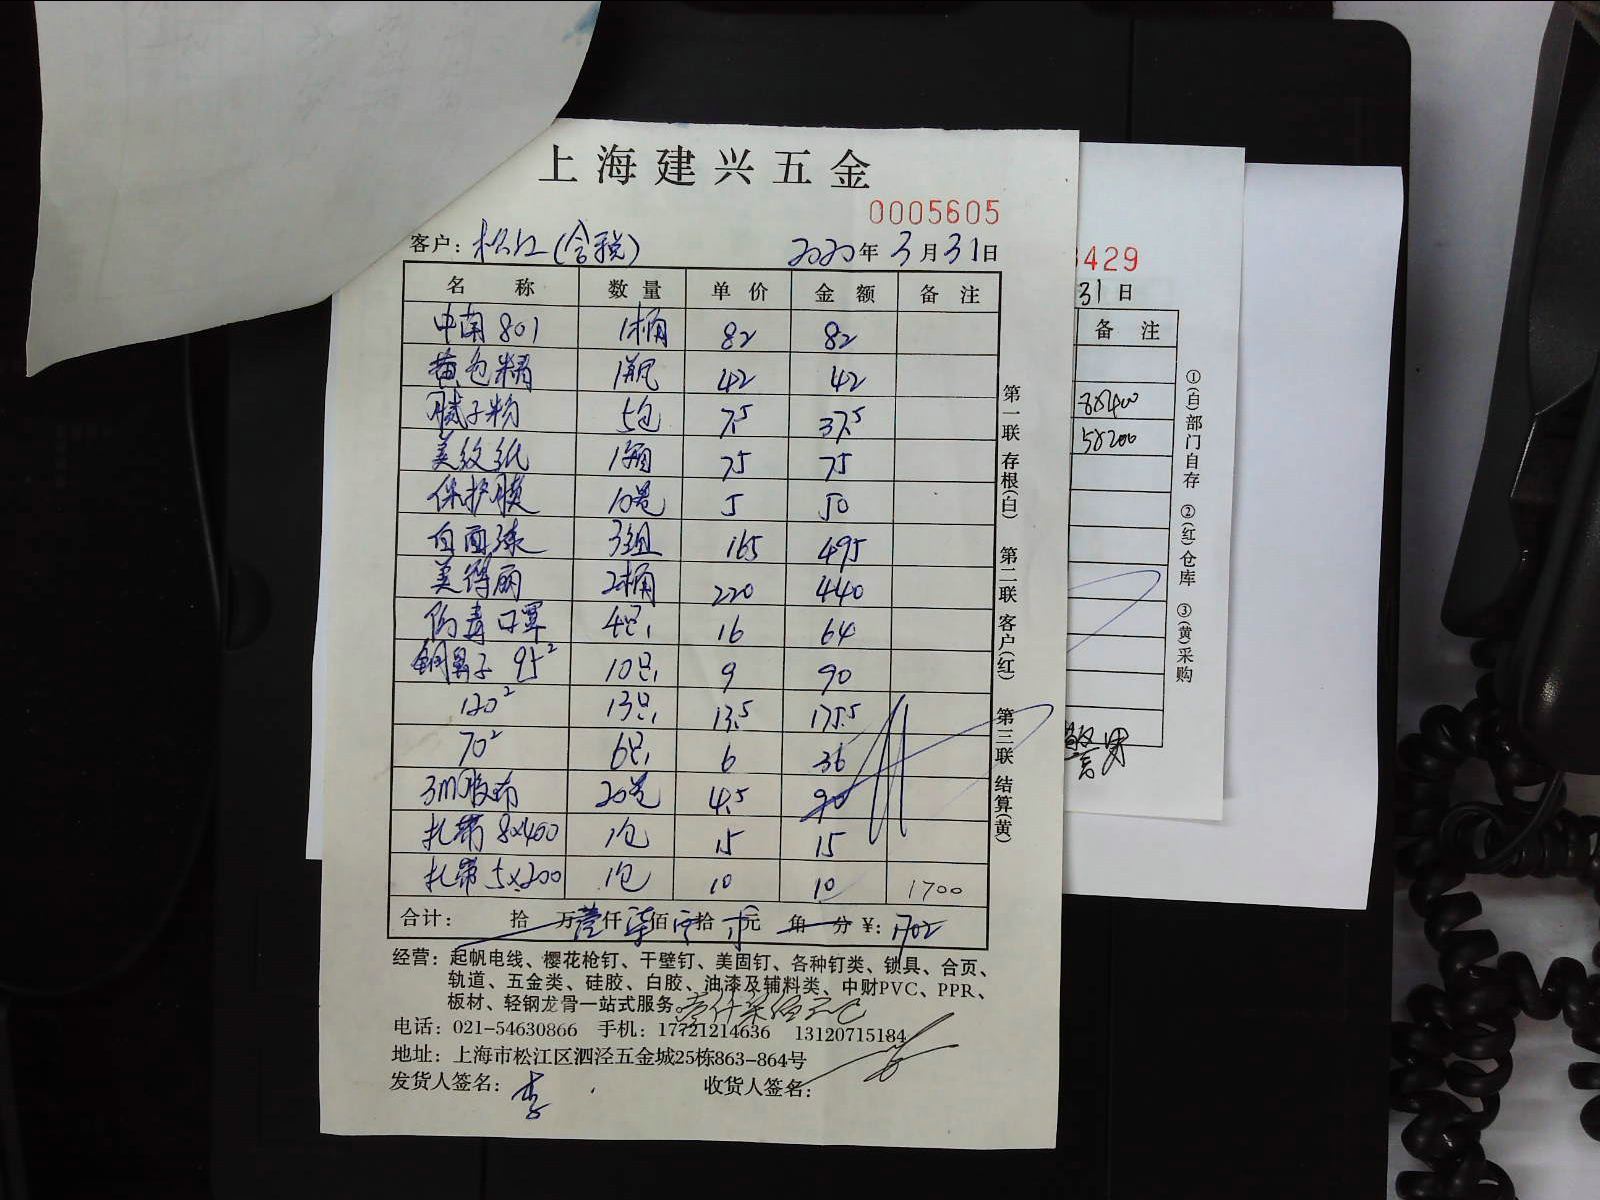 上海建兴五金
0005605
客户: 松江(含税) 2020年3月31日
名称 数量 单价 金额 备注
中南801 1桶 82 82
黄色精 1瓶 42 42
腻子粉 5包 7.5 37.5
美纹纸 1箱 75 75
保护膜 10卷 5 50
白面漆 3组 165 495
美得丽 2桶 220 440
防毒口罩 4只 16 64
铜鼻子 95² 10只 9 90
120² 13只 13.5 175.5
70² 6只 6 36
3m胶布 20卷 4.5 90
扎带 8×400 1包 15 15
扎带 5×200 1包 10 10 1700
合计: 拾万壹仟柒佰 拾 元 角 分 ¥: 1702
经营: 起帆电线、樱花枪钉、干壁钉、美固钉、各种钉类、锁具、合页、
轨道、五金类、硅胶、白胶、油漆及辅料类、中财PVC、PPR、
板材、轻钢龙骨一站式服务。
电话: 021-54630866 手机: 17721214636 13120715184
地址: 上海市松江区泗泾五金城25栋863-864号
发货人签名: 李 收货人签名:
第一联 存根(白) 第二联 客户(红) 第三联 结算(黄)
429
31日
备注
8×400
5×200
①(白)部门自存 ②(红)仓库 ③(黄)采购